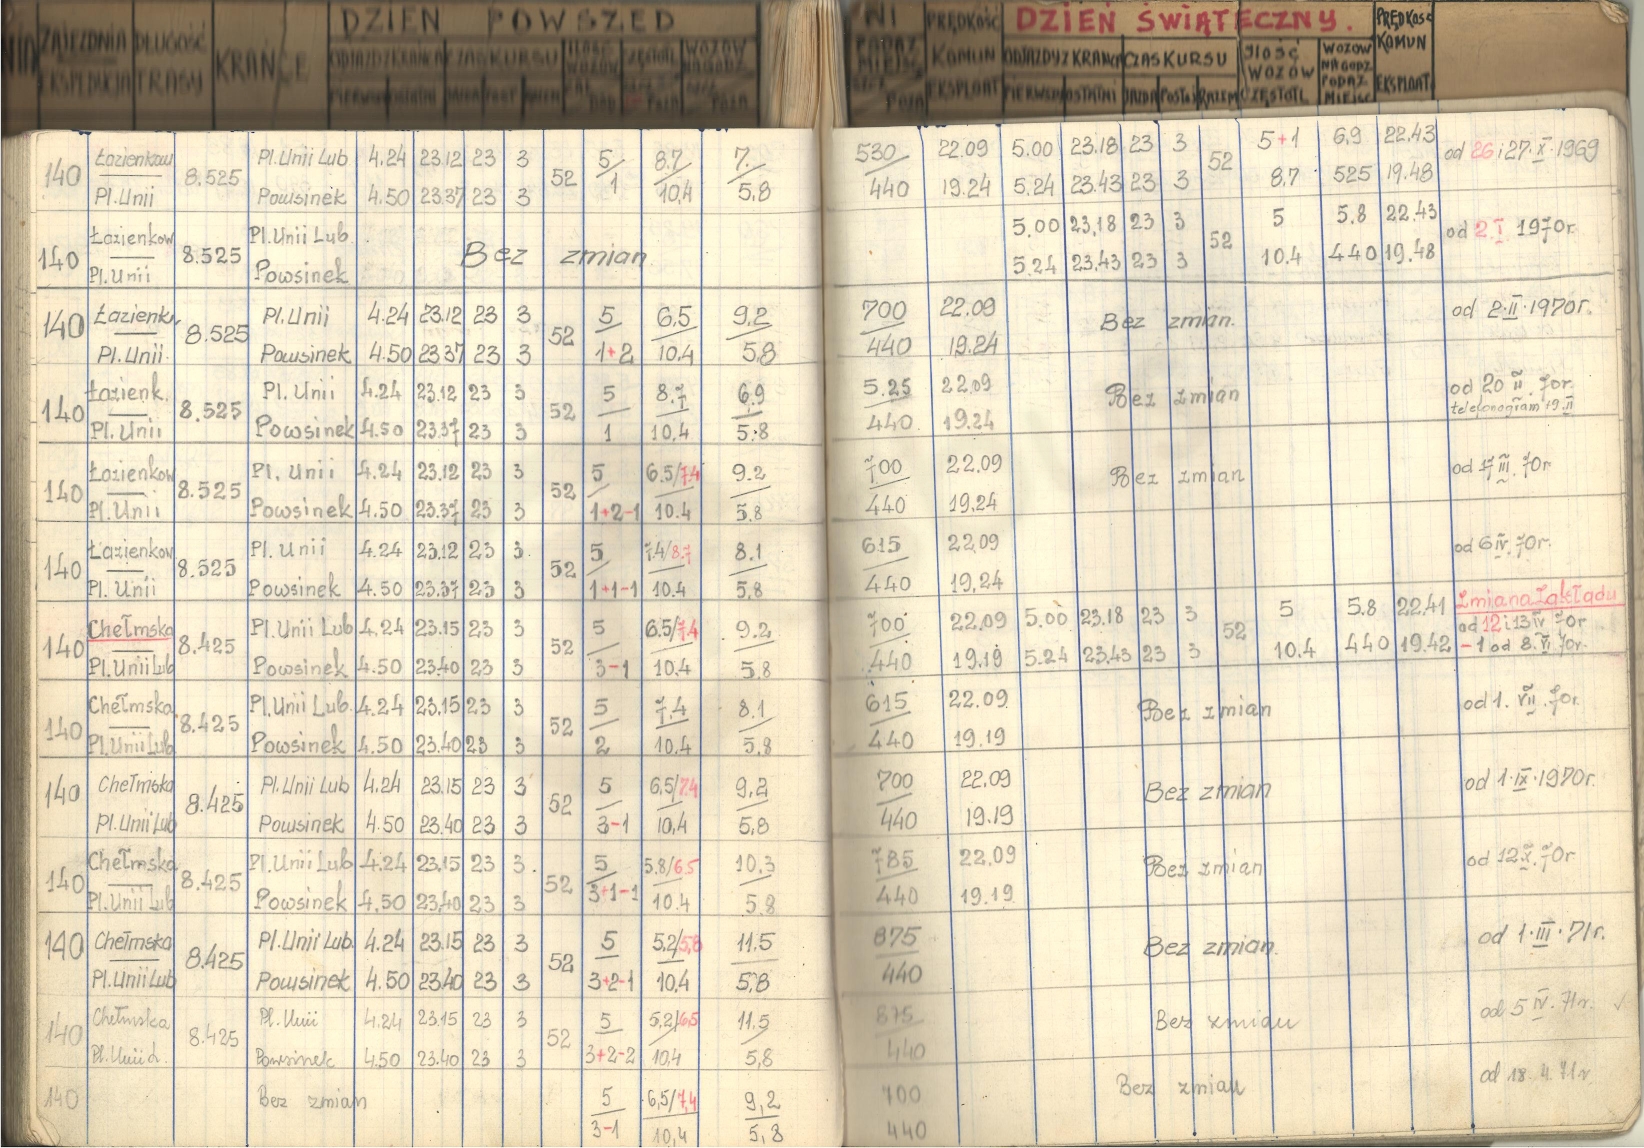 DZIEŃ POWSZED
ZAJEZDNIA DŁUGOŚĆ KRAŃCE
EKSPEDYCJA TRASY
NI PRĘDKOŚĆ DZIEŃ ŚWIĄTECZNY. PRĘDKOŚĆ
KOMUN ODJAZDY Z KRAŃCA CZAS KURSU ILOŚĆ WOZÓW KOMUN
EKSPLOAT PIERWSZY OSTATNI JAZDA POSTÓJ RAZEM CZĘSTOTL EKSPLOAT
140 Łazienkow 8.525 Pl. Unii Lub 4.24 23.12 23 3 52 5/ 8.7/ 7./ 530/ 22.09 5.00 23.18 23 3 52 5+1 6,9 22.43 od 26 i 27·X·1969
Pl. Unii Powsinek 4.50 23.37 23 3 1 10,4 5,8 440 19.24 5.24 23.43 23 3 8,7 525 19.48
140 Łazienkow 8.525 Pl. Unii Lub. Bez zmian 5.00 23,18 23 3 52 5 5.8 22.43 od 2.I 1970r.
Pl. Unii Powsinek 5.24 23.43 23 3 10.4 440 19.48
140 Łazienk. 8.525 Pl. Unii 4.24 23.12 23 3 52 5/ 6,5 9,2 700 22.09 Bez zmian. od 2·II·1970r.
Pl. Unii. Powsinek 4.50 23.37 23 3 1+2 10.4 5,8 440 19.24
140 Łazienk. 8.525 Pl. Unii 4.24 23.12 23 3 52 5 8.7 6,9 5.25 22.09 Bez zmian od 20 II. 70r.
Pl. Unii Powsinek 4.50 23.37 23 3 1 10,4 5.8 440. 19.24 telefonogram 19.II
140 Łazienkow 8.525 Pl. Unii 4.24 23.12 23 3 52 5 6.5/7.4 9.2 700 22.09 Bez zmian od 17 III. 70r.
Pl. Unii Powsinek 4.50 23.37 23 3 1+2-1 10.4 5.8 440 19.24
140 Łazienkow 8.525 Pl. Unii 4.24 23.12 23 3. 52 5 7.4/8.7 8.1 615 22.09 od 6 IV. 70r.
Pl. Unii Powsinek 4.50 23.37 23 3 1+1-1 10.4 5,8 440 19,24
140 Chełmska 8.425 Pl. Unii Lub 4.24 23.15 23 3 52 5 6.5/7.4 9.2 700 22.09 5.00 23.18 23 3 52 5 5.8 22.41 Zmiana Zakładu
od 12 i 13 IV 70r
Pl. Unii Lub Powsinek 4.50 23.40 23 3 3-1 10.4 5.8 440 19.19 5.24 23.43 23 3 10.4 440 19.42 -1 od 8. VI. 70r.
140 Chełmska 8.425 Pl. Unii Lub. 4.24 23.15 23 3 52 5 7.4 8.1 615 22.09 Bez zmian od 1. VII. 70r.
Pl. Unii Lub Powsinek 4.50 23.40 23 3 2 10.4 5,8 440 19.19
140 Chełmska 8.425 Pl. Unii Lub 4.24 23.15 23 3 52 5 6,5/7.4 9,2 700 22.09 Bez zmian od 1·IX·1970r.
Pl. Unii Lub Powsinek 4.50 23.40 23 3 3-1 10,4 5,8 440 19.19
140 Chełmska 8.425 Pl. Unii Lub 4.24 23.15 23 3. 52 5 5.8/6.5 10.3 785 22.09 Bez zmian od 12 X. 70r
Pl. Unii Lub Powsinek 4.50 23,40 23 3 3+1-1 10.4 5.8 440 19.19
140 Chełmska 8.425 Pl. Unii Lub. 4.24 23.15 23 3 52 5 5,2/5,8 11.5 875 Bez zmian. od 1·III·71r.
Pl. Unii Lub Powsinek 4.50 23.40 23 3 3+2-1 10,4 5,8 440
140 Chełmska 8.425 Pl. Unii 4.24 23.15 23 3 52 5 5,2/6,5 11.5 875 Bez zmian od 5 IV. 71r.
Powsinek 4.50 23.40 23 3 3+2-2 10.4 5,8 440
140 Bez zmian 5 6,5/7,4 9,2 700 Bez zmian od 18.4.71r
3-1 10,4 5,8 440